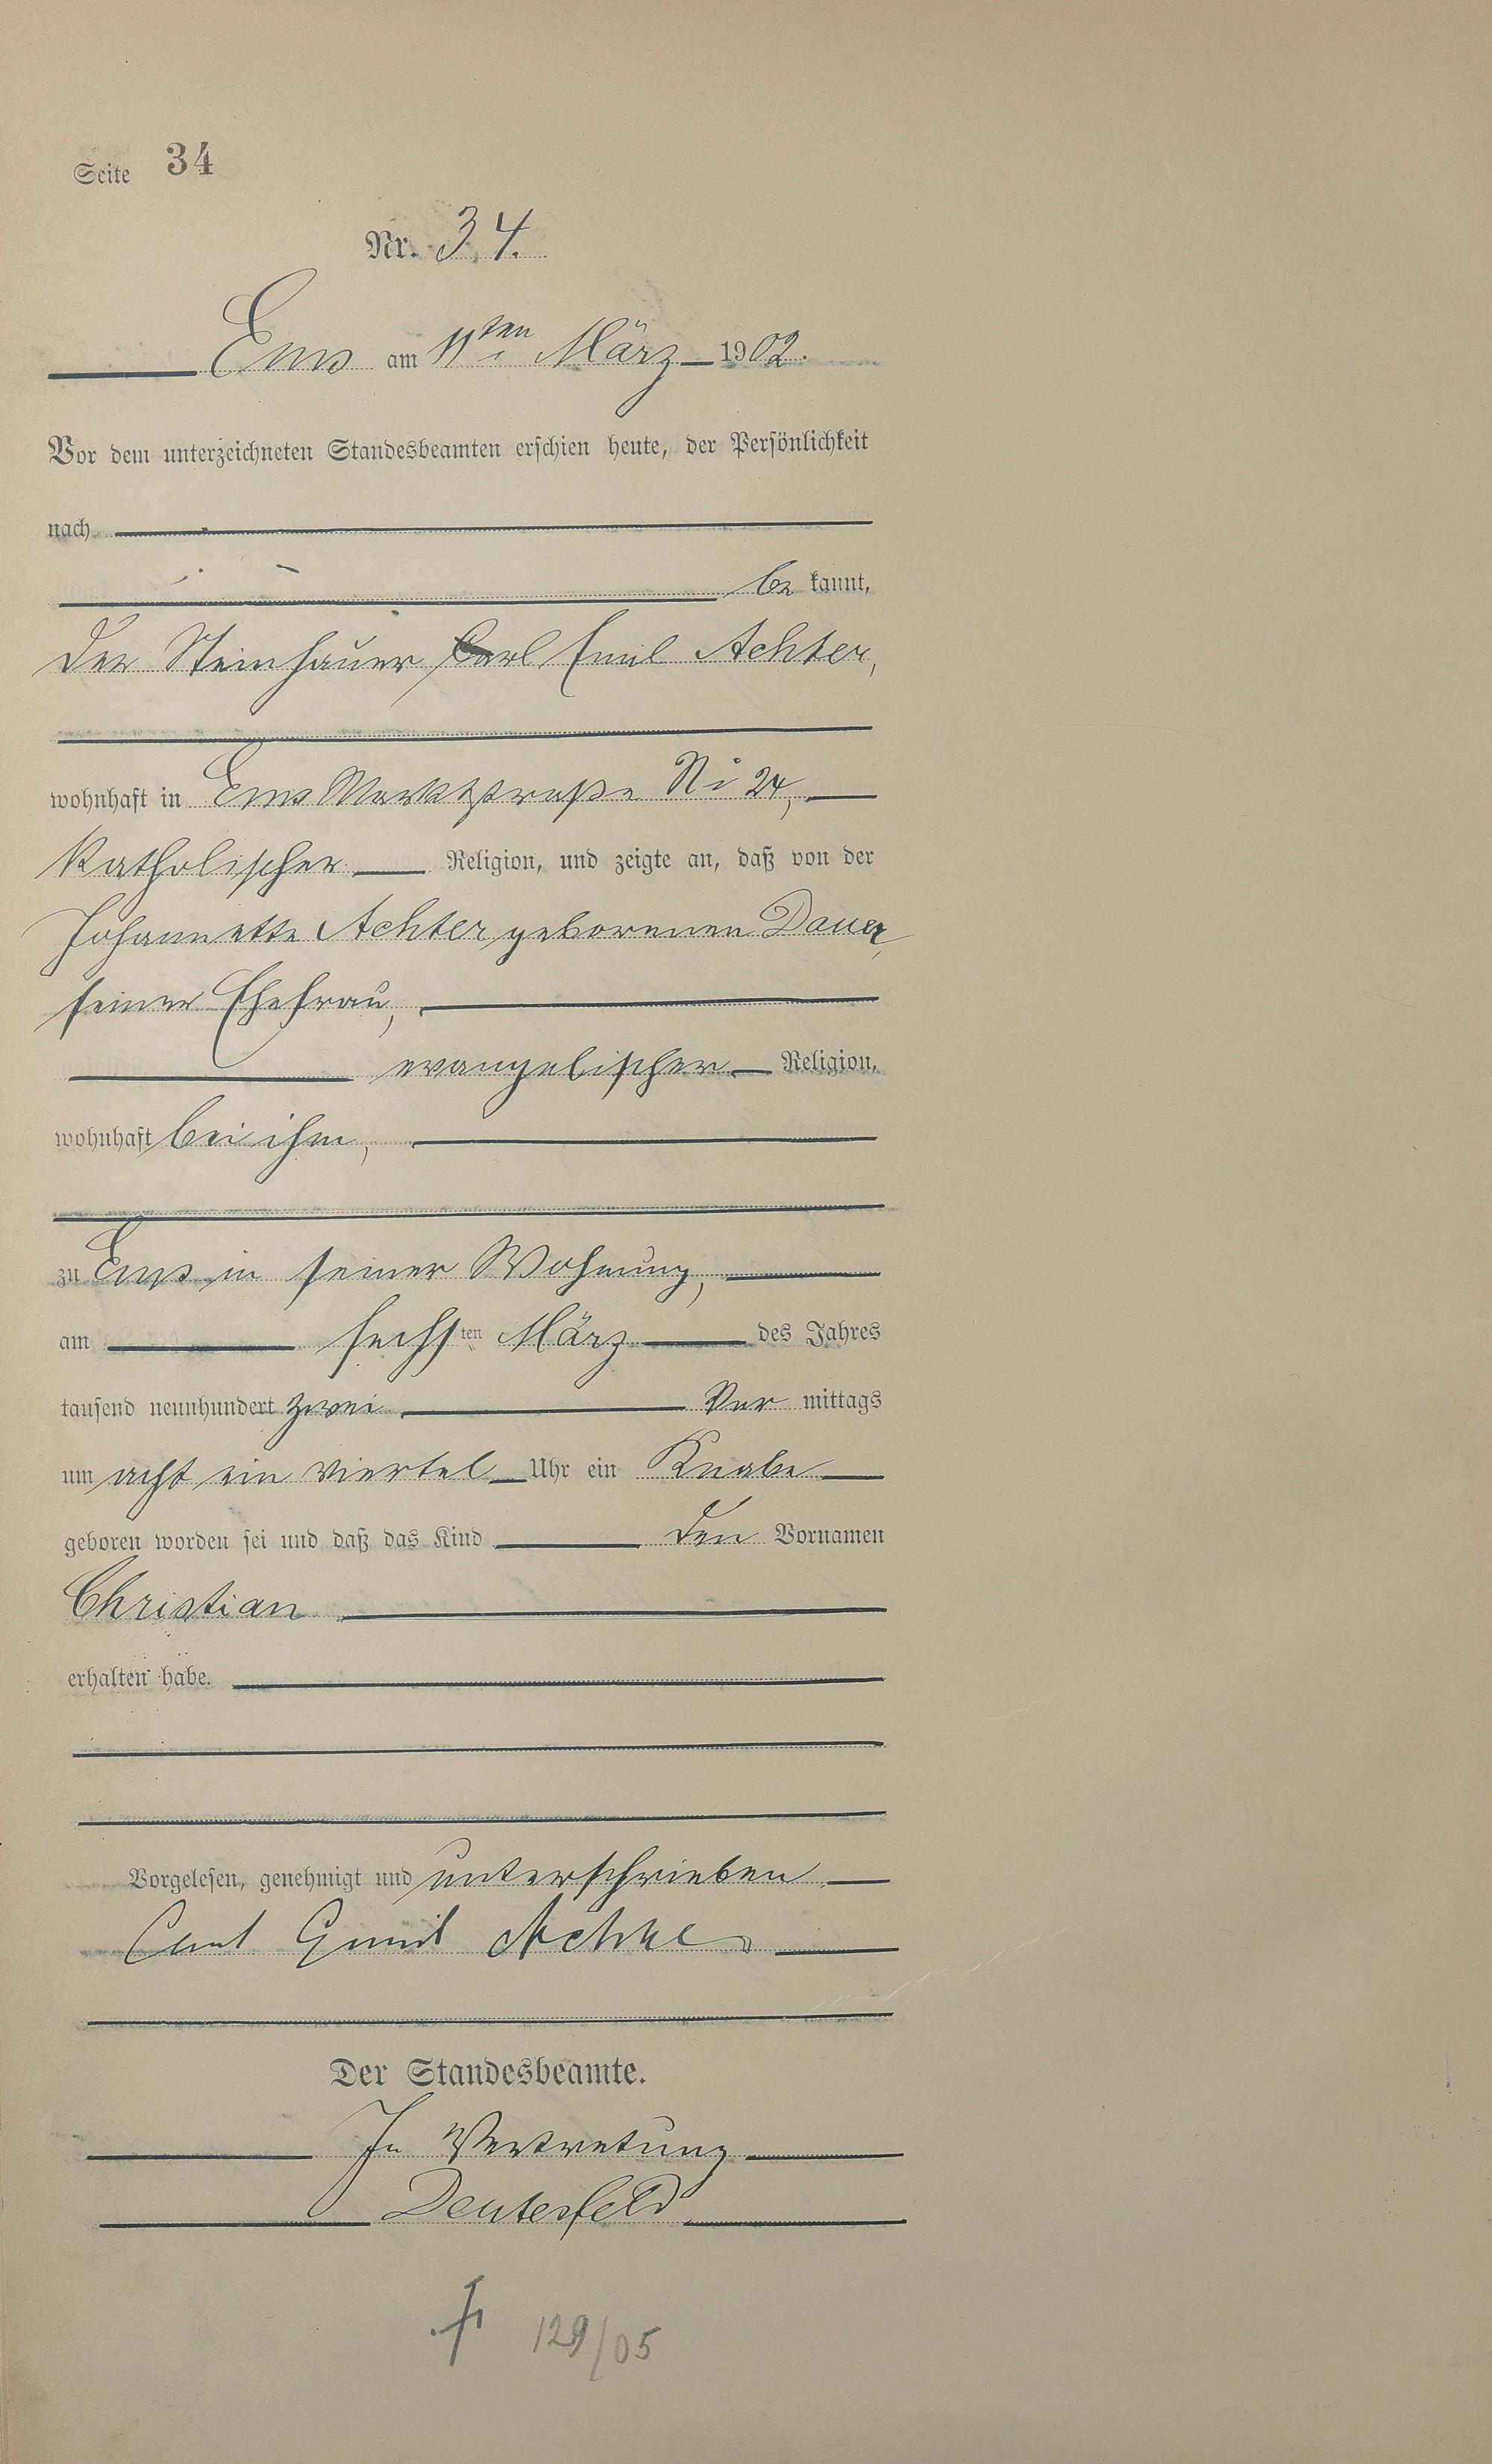 Seite 34
Nr. 34.
Ems am 11ten März 1902.
Vor dem unterzeichneten Standesbeamten erschien heute, der Persönlichkeit
nach
be kannt,
der Steinhauer Carl Emil Achter,
wohnhaft in Ems Marktstraße No 24,
katholischer Religion, und zeigte an, daß von der
Johannette Achter geborenen Dauer,
seiner Ehefrau,
evangelischer Religion,
wohnhaft bei ihm,
zu Ems in seiner Wohnung,
am sechsten März des Jahres
tausend neunhundert zwei Vor mittags
um acht ein viertel Uhr ein Knabe
geboren worden sei und daß das Kind den Vornamen
Christian
erhalten habe.
Vorgelesen, genehmigt und unterschrieben
Carl Emil Achter
Der Standesbeamte.
In Vertretung
Deuterfeld
† 129/05